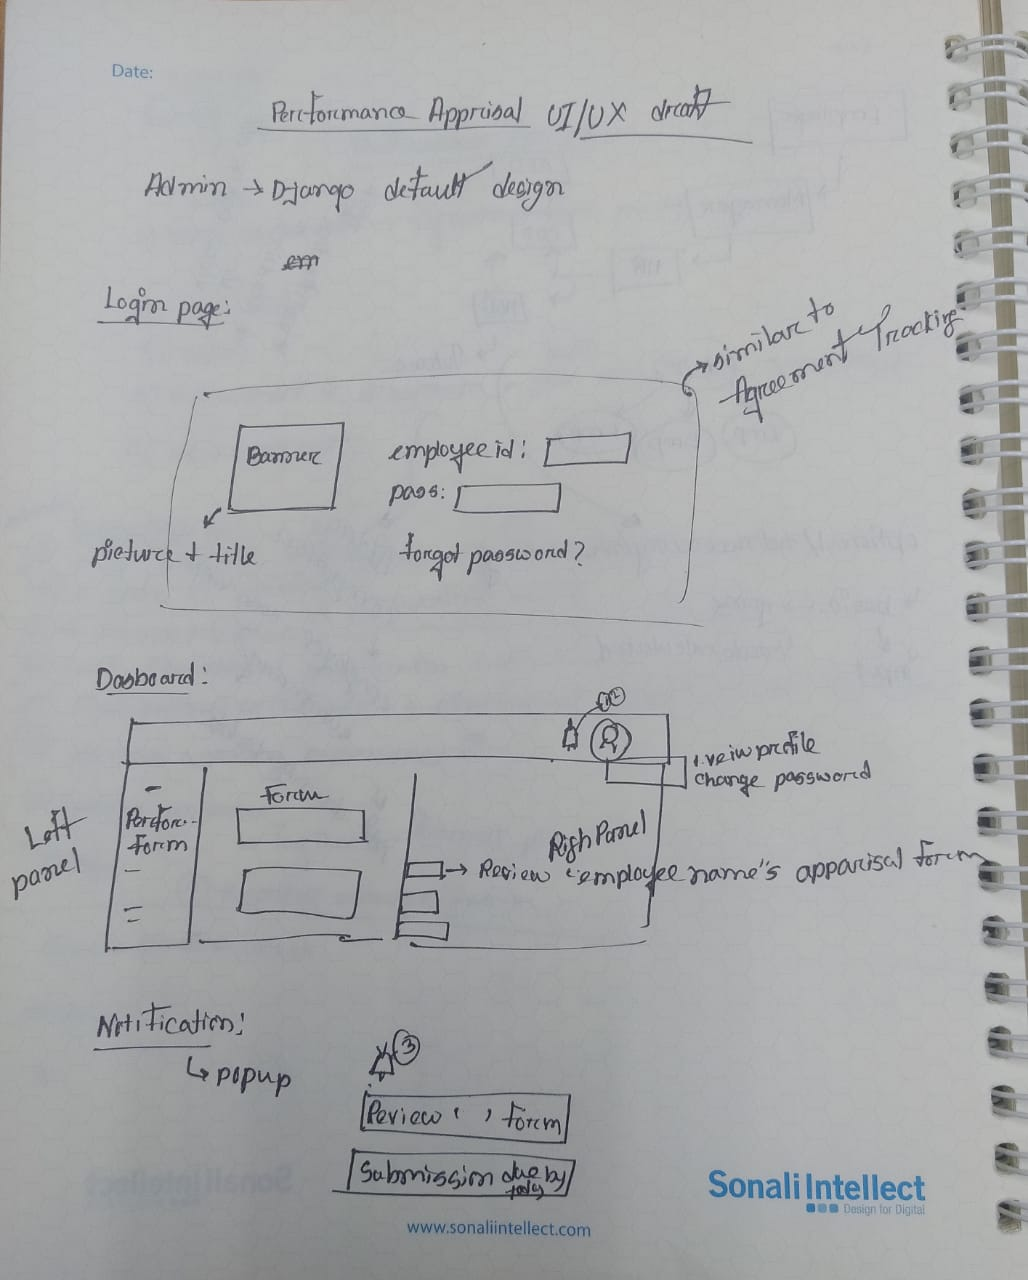 Date:
Performance Apprisal UI/UX draft
Admin → Django default design
em
Login page:
similar to
Agreement Tracking
Banner
employee id:
pass:
picture + title
forgot password?
Dasboard:
1. veiw profile
change password
Left
panel
Perfor.
form
Form
Righ Panel
→ Review "employee name's apparisal form
Notification:
↳ popup
3
Review ' ' form
Submission due by
today
Sonali Intellect
Design for Digital
www.sonaliintellect.com